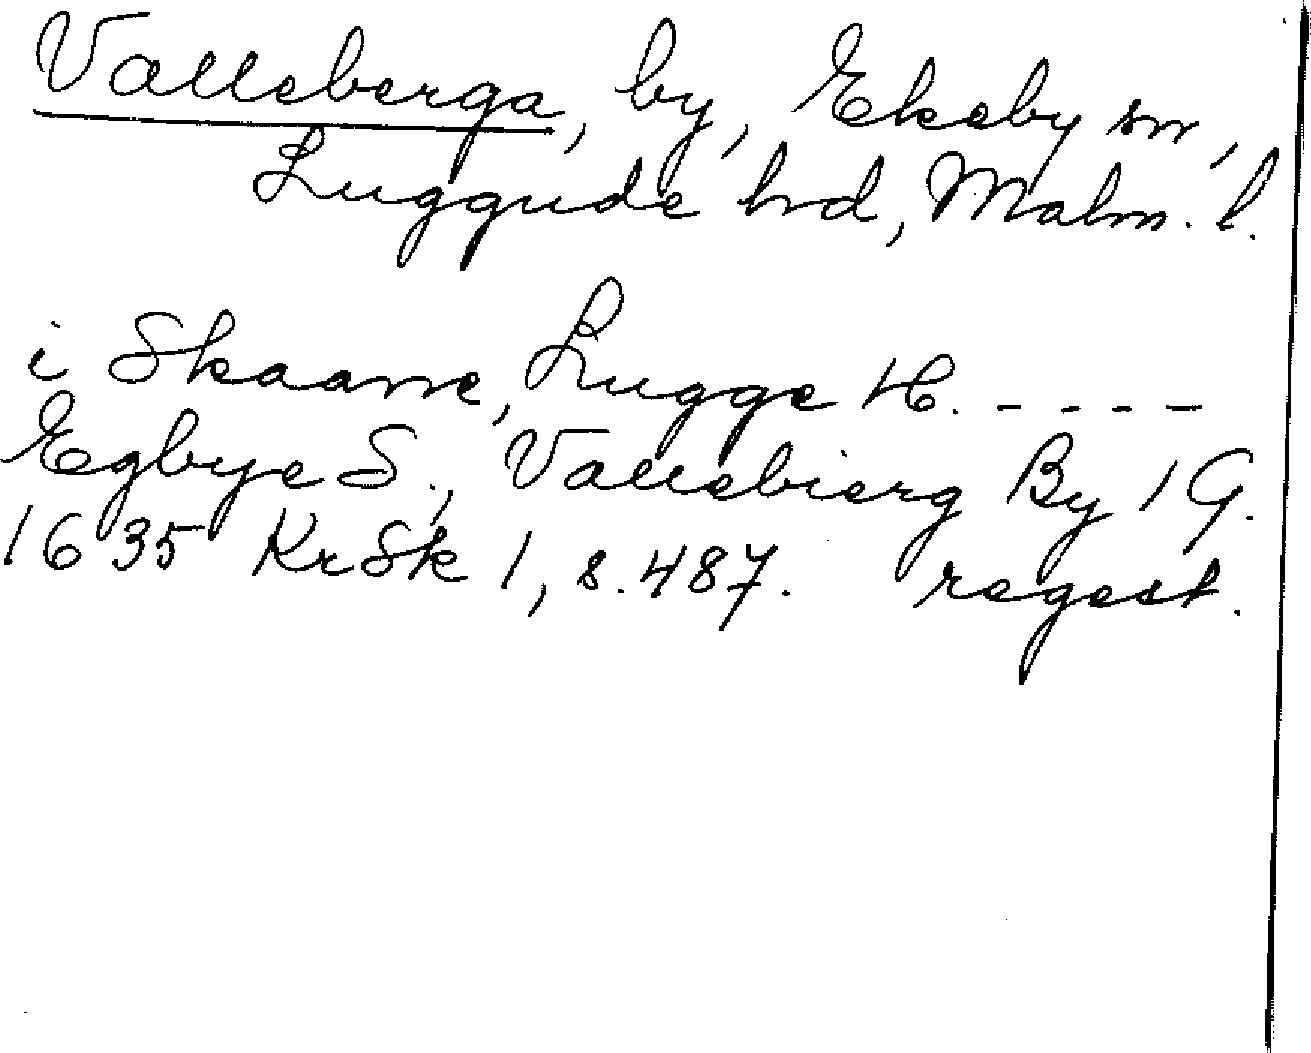 Valleberga, by, Ekeby sn,
Luggude hrd, Malm. l.
i Skaane, Lugge H. - - - - -
Egbye S., Vallebierg By 1 G.
1635 KrSk 1, s. 487. regest.